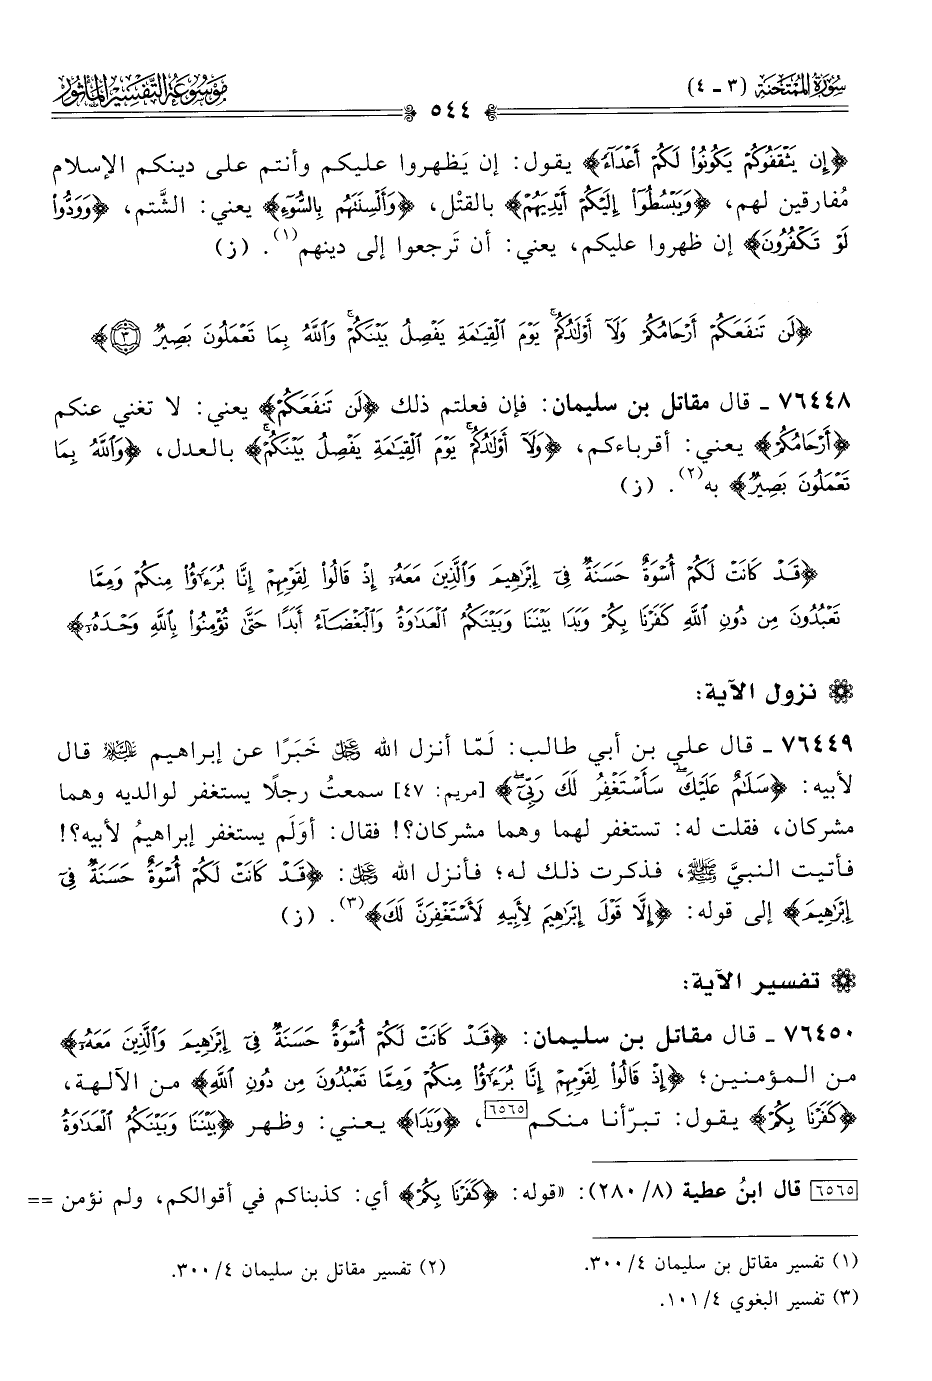 سورة الممتحنة (٣ - ٤)
موسوعة التفسير المأثور
٥٤٤
﴿إِن يَثْقَفُوكُمْ يَكُونُوا۟ لَكُمْ أَعْدَآءً﴾ يقول: إن يَظهروا عليكم وأنتم على دينكم الإسلام
مُفارقين لهم، ﴿وَيَبْسُطُوٓا۟ إِلَيْكُمْ أَيْدِيَهُمْ﴾ بالقتْل، ﴿وَأَلْسِنَتَهُم بِالسُّوٓءِ﴾ يعني: الشَّتم، ﴿وَوَدُّوا۟
لَوْ تَكْفُرُونَ﴾ إن ظهروا عليكم، يعني: أن تَرجعوا إلى دينهم(١). (ز)
﴿لَن تَنفَعَكُمْ أَرْحَامُكُمْ وَلَآ أَوْلَٰدُكُمْ ۚ يَوْمَ ٱلْقِيَٰمَةِ يَفْصِلُ بَيْنَكُمْ ۚ وَٱللَّهُ بِمَا تَعْمَلُونَ بَصِيرٌ ٣﴾
٧٦٤٤٨ ـ قال مقاتل بن سليمان: فإن فعلتم ذلك ﴿لَن تَنفَعَكُمْ﴾ يعني: لا تغني عنكم
﴿أَرْحَامُكُمْ﴾ يعني: أقرباءكم، ﴿وَلَآ أَوْلَٰدُكُمْ ۚ يَوْمَ ٱلْقِيَٰمَةِ يَفْصِلُ بَيْنَكُمْ ۚ﴾ بالعدل، ﴿وَٱللَّهُ بِمَا
تَعْمَلُونَ بَصِيرٌ﴾ به(٢). (ز)
﴿قَدْ كَانَتْ لَكُمْ أُسْوَةٌ حَسَنَةٌ فِىٓ إِبْرَٰهِيمَ وَٱلَّذِينَ مَعَهُۥٓ إِذْ قَالُوا۟ لِقَوْمِهِمْ إِنَّا بُرَءَٰٓؤُا۟ مِنكُمْ وَمِمَّا
تَعْبُدُونَ مِن دُونِ ٱللَّهِ كَفَرْنَا بِكُمْ وَبَدَا بَيْنَنَا وَبَيْنَكُمُ ٱلْعَدَٰوَةُ وَٱلْبَغْضَآءُ أَبَدًا حَتَّىٰ تُؤْمِنُوا۟ بِٱللَّهِ وَحْدَهُۥٓ﴾
نزول الآية:
٧٦٤٤٩ ـ قال علي بن أبي طالب: لَمّا أنزل الله ﷿ خَبَرًا عن إبراهيم ﵇ قال
لأبيه: ﴿سَلَٰمٌ عَلَيْكَ ۖ سَأَسْتَغْفِرُ لَكَ رَبِّىٓ ۖ﴾ [مريم: ٤٧] سمعتُ رجلًا يستغفر لوالديه وهما
مشركان، فقلت له: تستغفر لهما وهما مشركان؟! فقال: أوَلَم يستغفر إبراهيمُ لأبيه؟!
فأتيت النبيَّ ﷺ، فذكرت ذلك له؛ فأنزل الله ﷿: ﴿قَدْ كَانَتْ لَكُمْ أُسْوَةٌ حَسَنَةٌ فِىٓ
إِبْرَٰهِيمَ﴾ إلى قوله: ﴿إِلَّا قَوْلَ إِبْرَٰهِيمَ لِأَبِيهِ لَأَسْتَغْفِرَنَّ لَكَ﴾(٣). (ز)
تفسير الآية:
٧٦٤٥٠ ـ قال مقاتل بن سليمان: ﴿قَدْ كَانَتْ لَكُمْ أُسْوَةٌ حَسَنَةٌ فِىٓ إِبْرَٰهِيمَ وَٱلَّذِينَ مَعَهُۥٓ﴾
من المؤمنين؛ ﴿إِذْ قَالُوا۟ لِقَوْمِهِمْ إِنَّا بُرَءَٰٓؤُا۟ مِنكُمْ وَمِمَّا تَعْبُدُونَ مِن دُونِ ٱللَّهِ﴾ من الآلهة،
﴿كَفَرْنَا بِكُمْ﴾ يقول: تبرّأنا منكم[٦٥٦٥]، ﴿وَبَدَا﴾ يعني: وظهر ﴿بَيْنَنَا وَبَيْنَكُمُ ٱلْعَدَٰوَةُ
[٦٥٦٥] قال ابنُ عطية (٢٨٠/٨): «قوله: ﴿كَفَرْنَا بِكُمْ﴾ أي: كذبناكم في أقوالكم، ولم نؤمن ==
(١) تفسير مقاتل بن سليمان ٣٠٠/٤.
(٢) تفسير مقاتل بن سليمان ٣٠٠/٤.
(٣) تفسير البغوي ١٠١/٤.